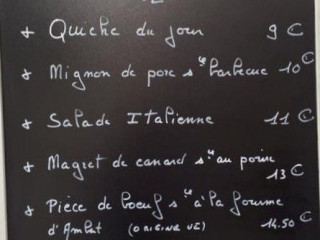 + Quiche du jour 9 €
+ Mignon de porc sce barbecue 10 €
+ Salade Italienne 11 €
+ Magret de canard sce au poivre 13 €
+ Pièce de boeuf sce à la fourme
d'Ambert (ORIGINE UE) 14.50 €